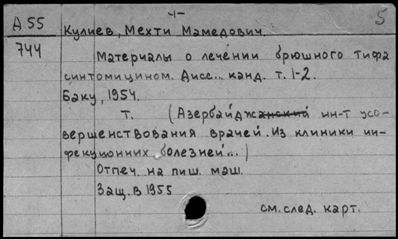 -1-
А 55
5
Кулиев, Мехти Мамедович.
744
Материалы о лечении брюшного тифа
синтомицином. Дисс... канд. т. 1-2.
Баку, 1954.
т. (Азербайджанский ин-т усо-
вершенствования врачей. Из клиники ин-
фекционних болезней...)
Отпеч. на пиш. маш.
Защ. в 1955
см. след. карт.